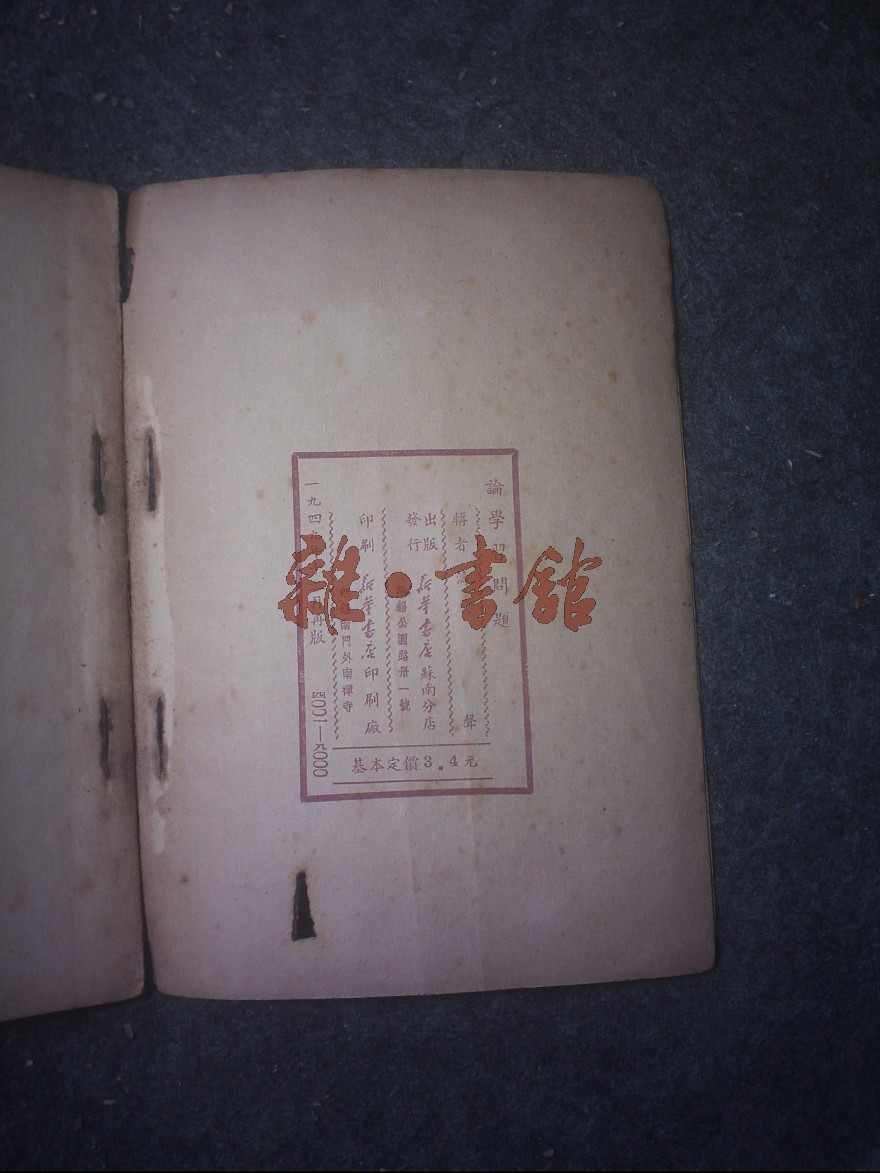 論學習問題
輯者 聲
出版
發行
新華書店蘇南分店
錫公園路卅一號
印刷
新華書店印刷廠
南門外南禪寺
一九四 月再版 四〇〇一—九〇〇〇
基本定價3.4元
雜·書館